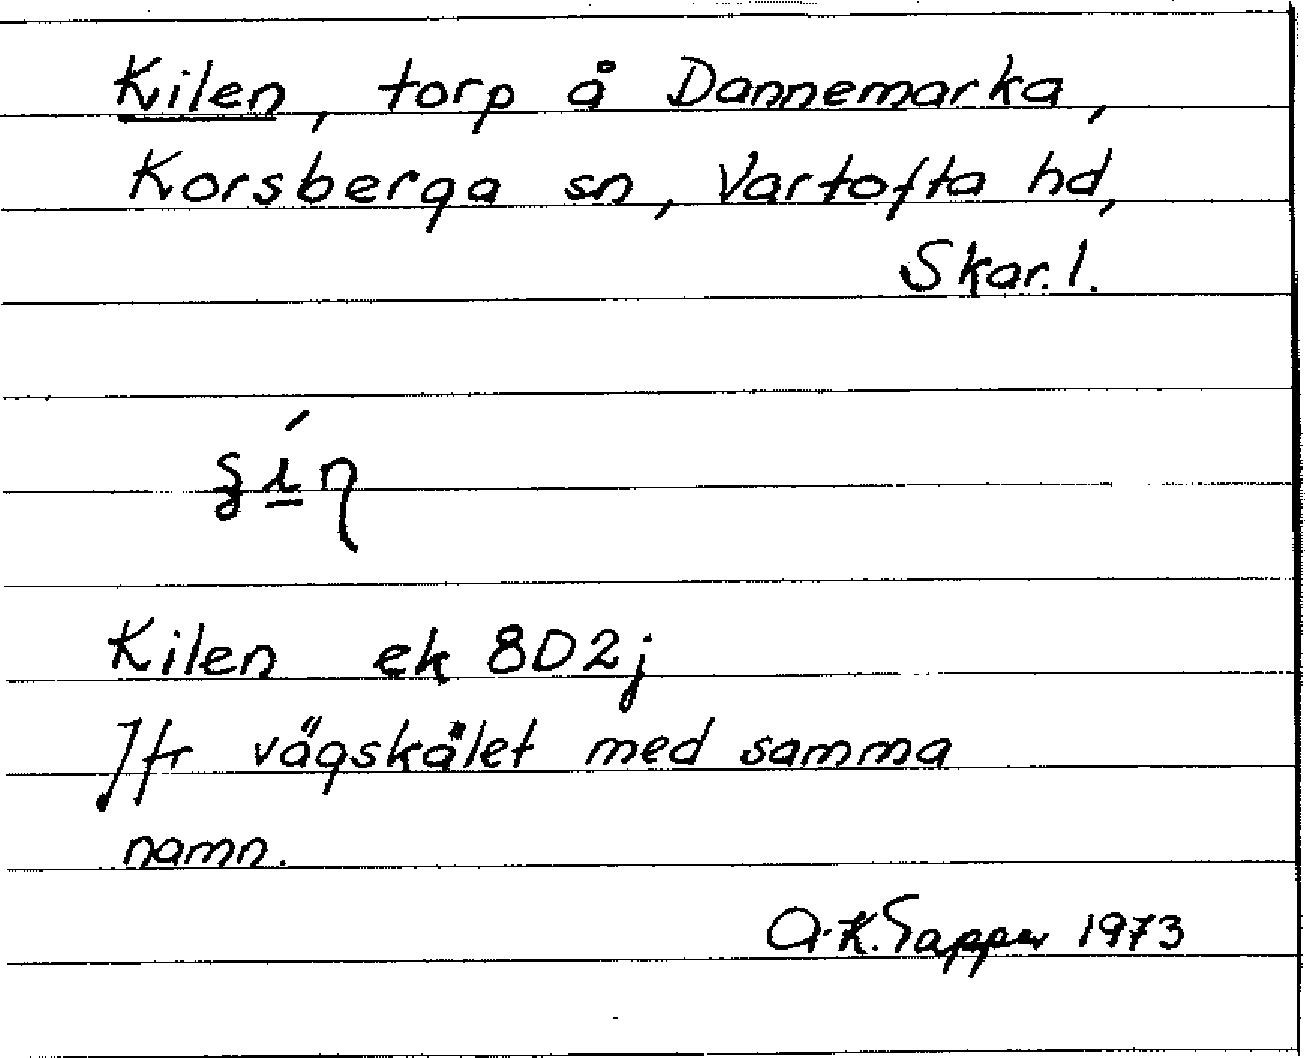 Kilen, torp å Dannemarka,
Korsberga sn, Vartofta hd,
Skar. l.
Kilen ek 8D2j
Jfr vägskälet med samma
namn.
A.K. Tapper 1973